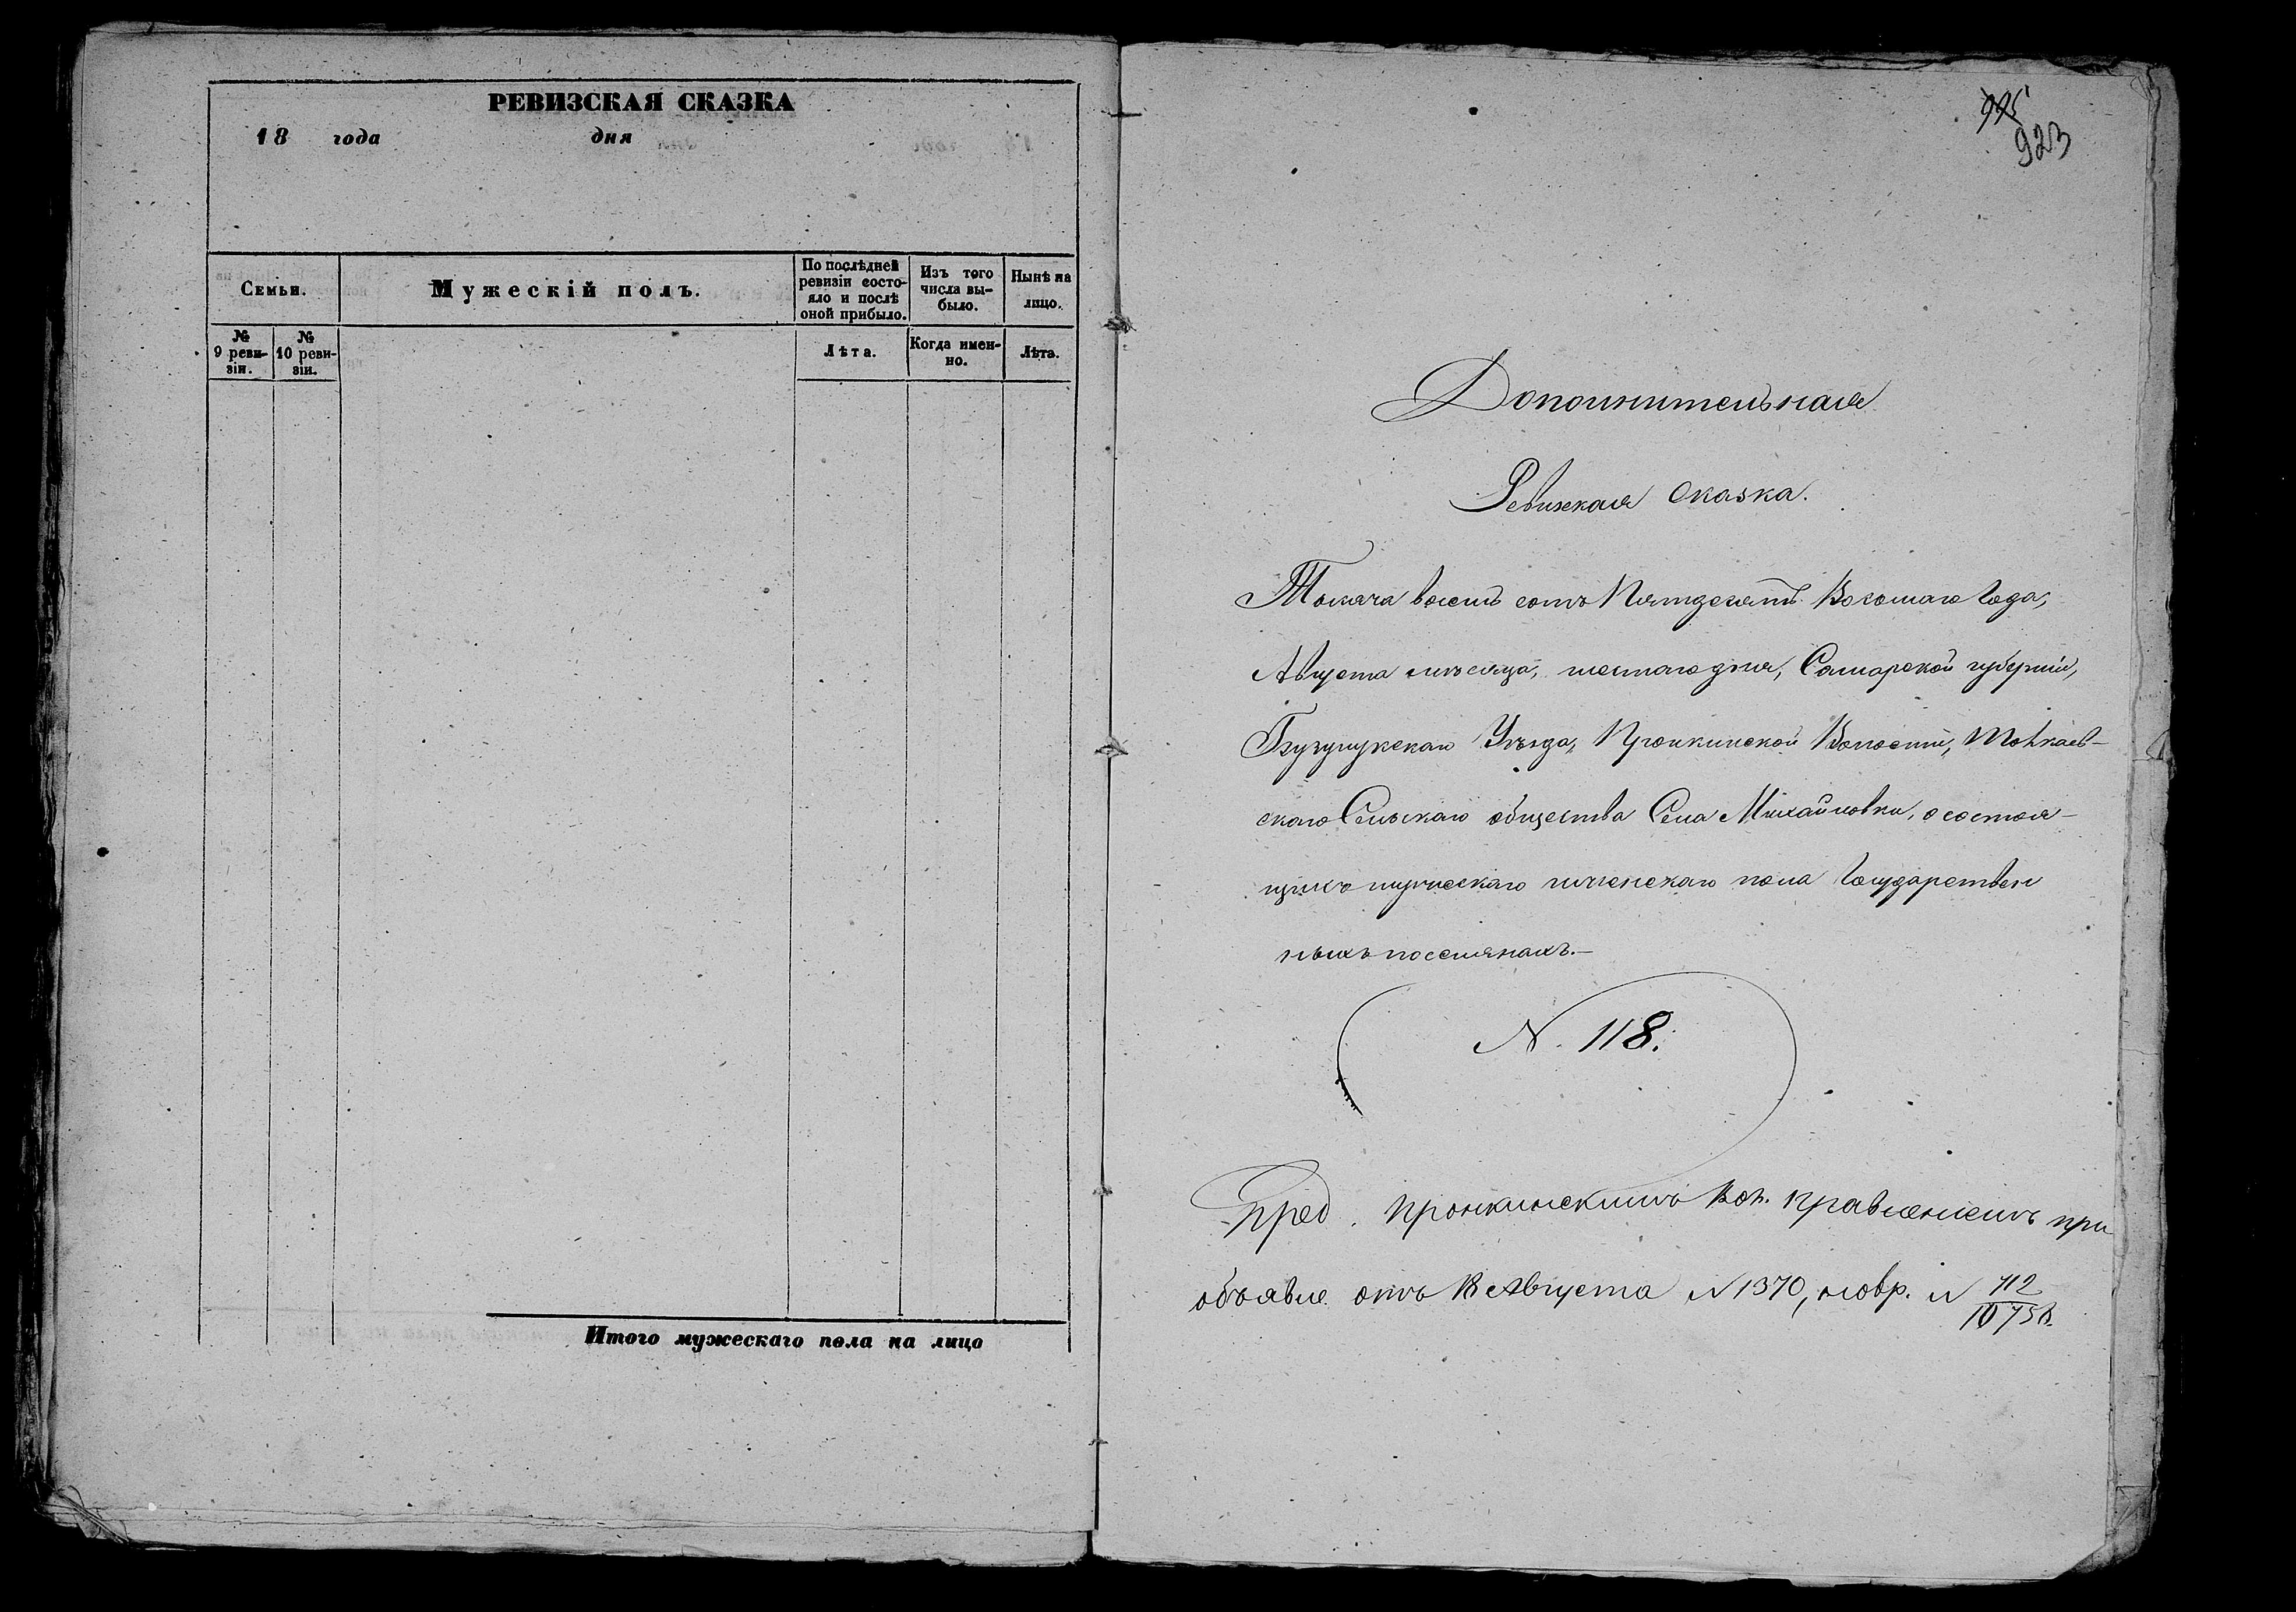 РЕВИЗСКАЯ СКАЗКА
18 года дня
Семьи.
Мужескій полъ.
По послѣдней ревизіи состо-яло и послѣ оной прибыло.
Изъ того числа вы-было.
Нынѣ на лицо.
№ 9 реви-зіи.
№ 10 реви-зіи.
Лѣта.
Когда имен-но.
Лѣта.
Итого мужескаго пола на лицо
923
Дополнительная
Ревизская Сказка.
Тысяча восемь сотъ Пятдесятъ Восьмаго Года,
Августа мѣсяца, шестаго дня, Самарской губерніи,
Бузулукскаго Уѣзда, Пронкинской Волости, Токаев-
скаго Сельскаго общества Села Михайловки, о состоя-
щихъ мужескаго и женскаго пола Государствен
ныхъ поселянахъ.—
N. 118.
Пред. Пронкинскимъ Вол. Правленіемъ при
объявле. отъ 18 Августа N 1370, N 112